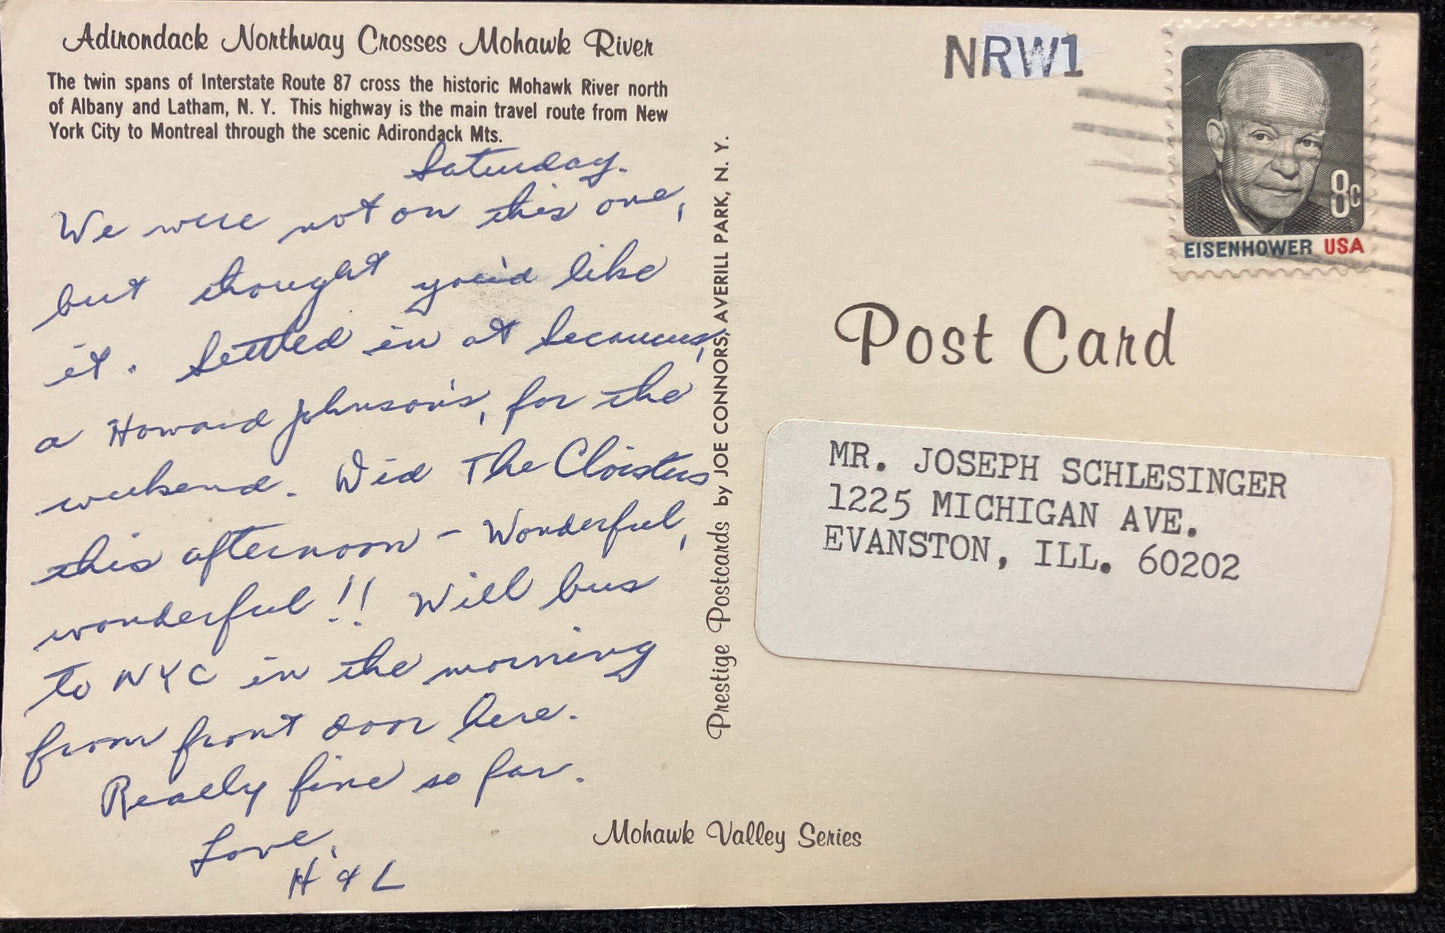 Adirondack Northway Crosses Mohawk River
The twin spans of Interstate Route 87 cross the historic Mohawk River north
of Albany and Latham, N. Y. This highway is the main travel route from New
York City to Montreal through the scenic Adirondack Mts.
Saturday.
We were not on this one,
but thought you'd like
it. Settled in at Secaucus,
a Howard Johnson's, for the
weekend. Did The Cloisters
this afternoon - Wonderful,
wonderful!! Will bus
to NYC in the morning
from front door here.
Really fine so far.
Love,
H & L
Prestige Postcards by JOE CONNORS, AVERILL PARK, N. Y.
Mohawk Valley Series
NRW1
8c
EISENHOWER USA
Post Card
MR. JOSEPH SCHLESINGER
1225 MICHIGAN AVE.
EVANSTON, ILL. 60202